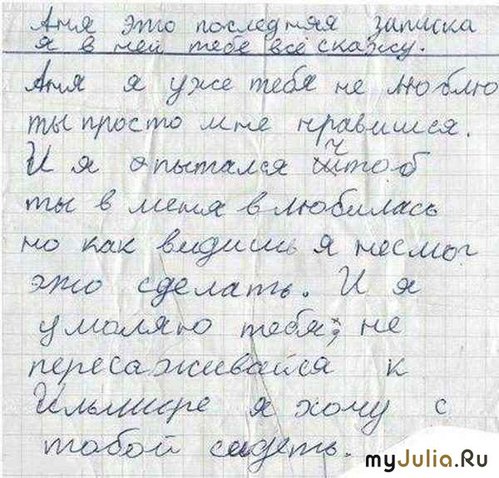 Аня это последняя записка
я в ней тебе всё скажу.
Аня я уже тебя не люблю
ты просто мне нравишся.
И я опытался чтоб
ты в меня влюбилась
но как видишь я несмог
это сделать. И я
умоляю тебя; не
пересаживайся к
Ильмире я хочу с
тобой сидеть.
myJulia.Ru